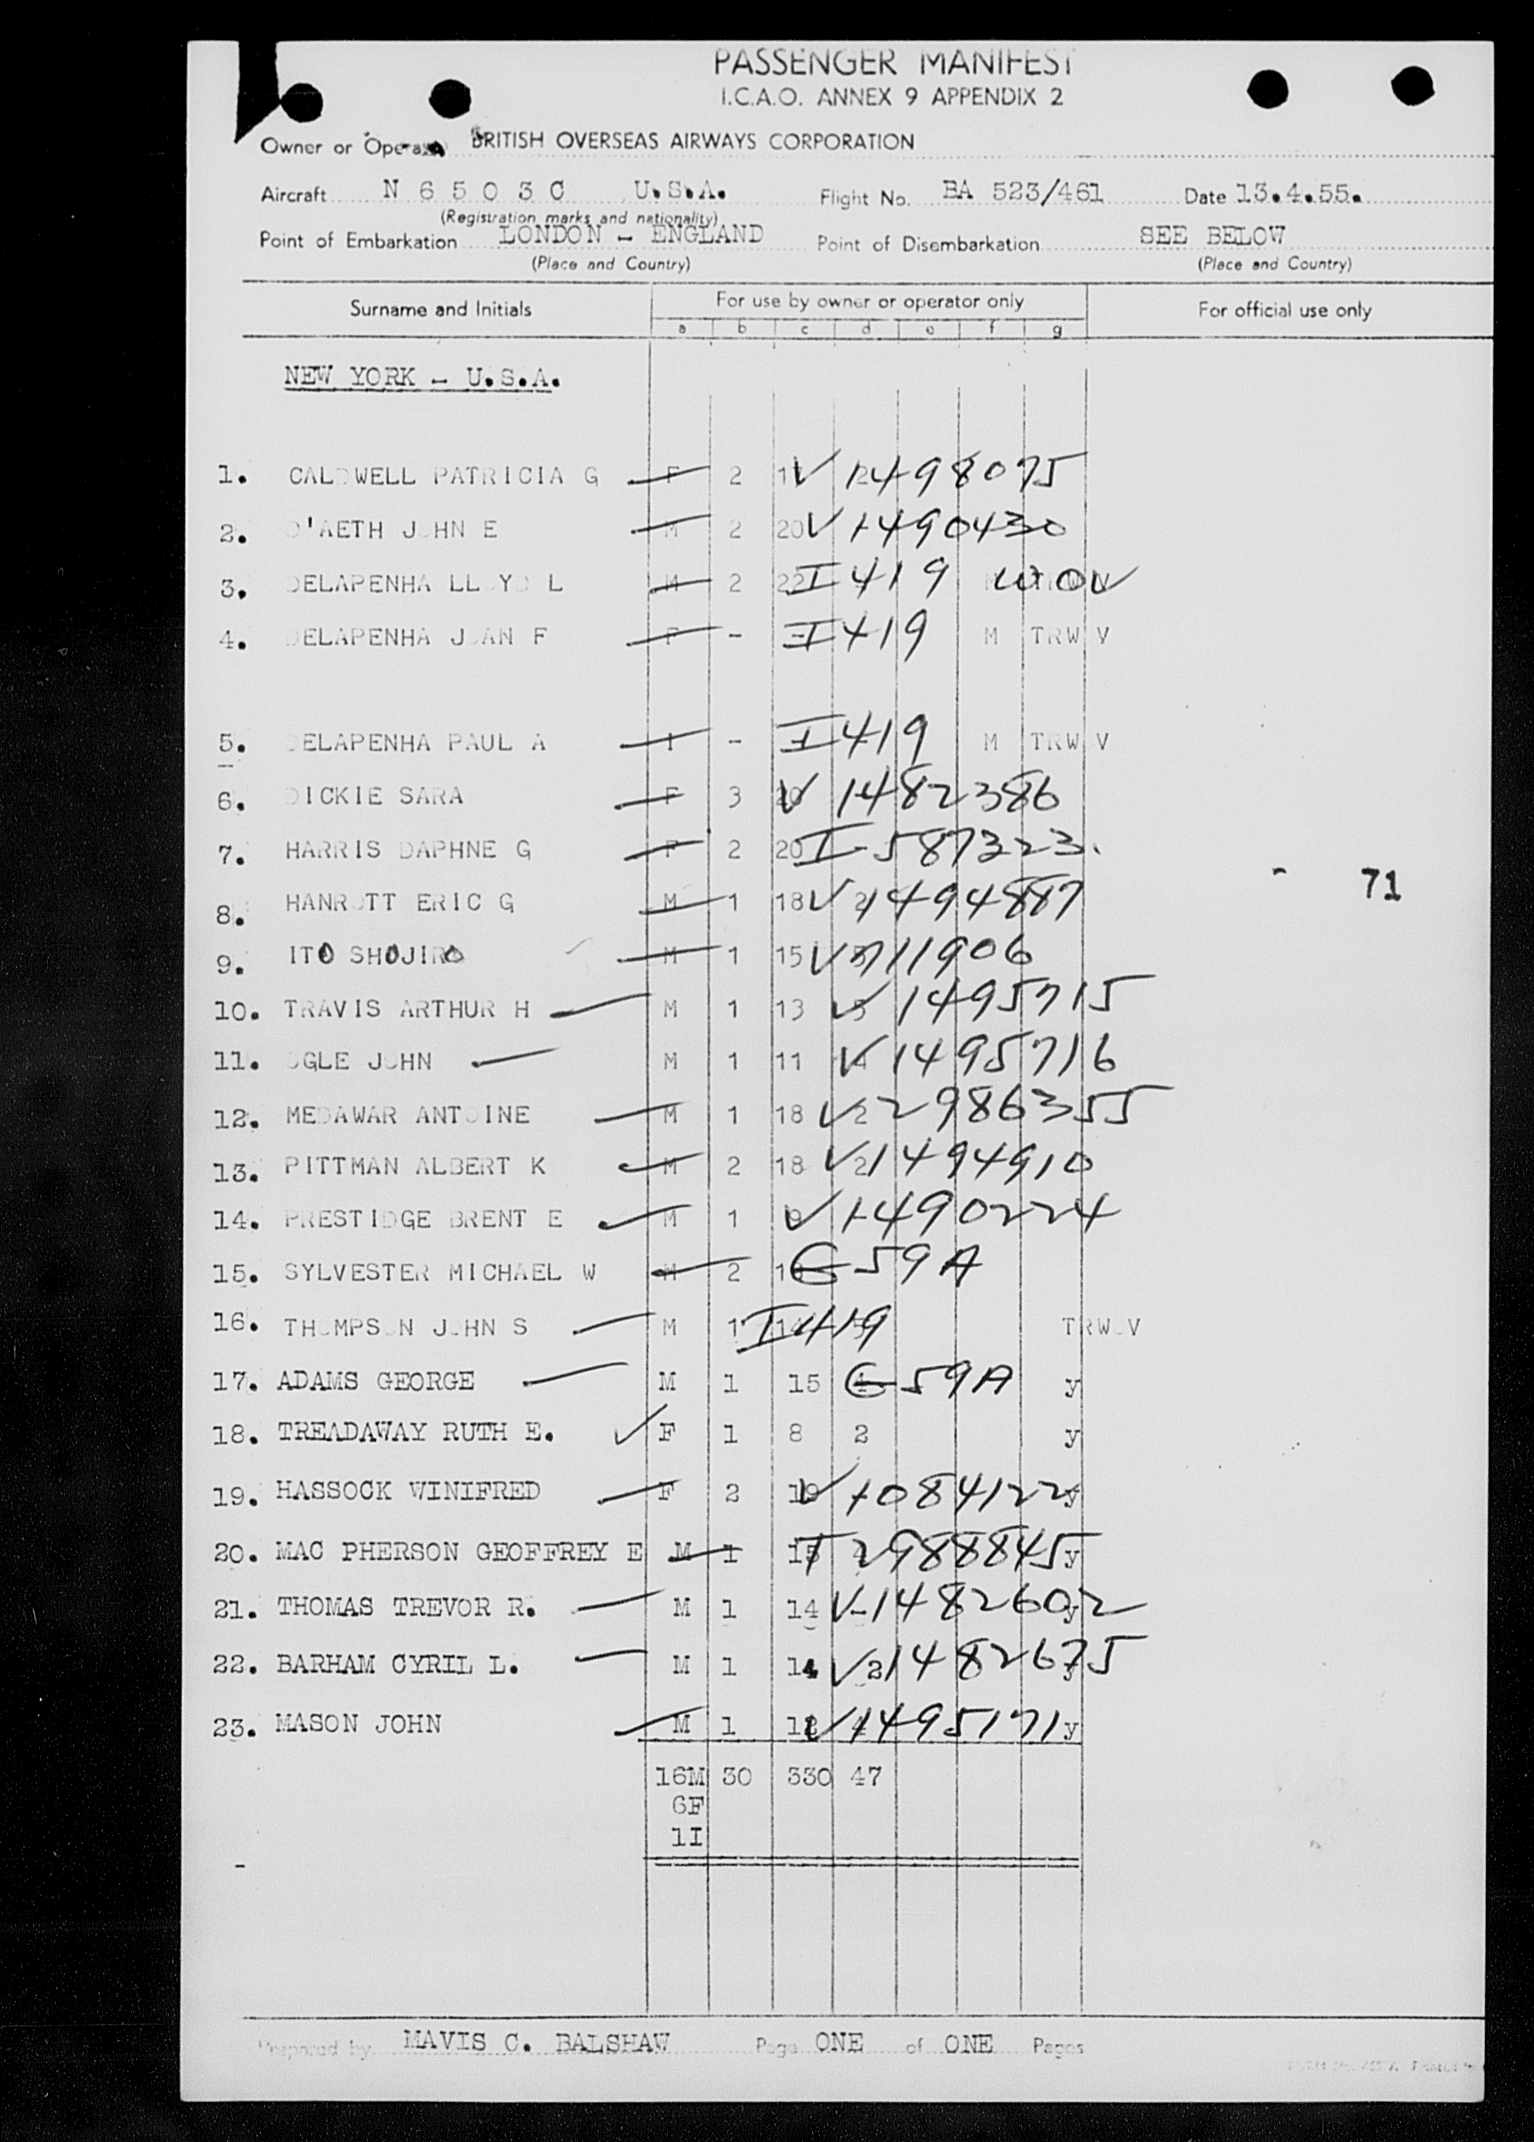 PASSENGER MANIFEST
I.C.A.O. ANNEX 9 APPENDIX 2
Owner or Operator BRITISH OVERSEAS AIRWAYS CORPORATION
Aircraft N 6 5 0 3 C U.S.A. Flight No. BA 523/461 Date 13.4.55.
(Registration marks and nationality)
Point of Embarkation LONDON - ENGLAND Point of Disembarkation SEE BELOW
(Place and Country) (Place and Country)
Surname and Initials For use by owner or operator only For official use only
a b c d e f g
NEW YORK - U.S.A.
1. CALDWELL PATRICIA G F 2 V 1498075
2. D'AETH JOHN E M 2 20 V 1490430
3. DELAPENHA LLOYD L M 2 22 I 419
4. DELAPENHA JOAN F F - I 419 M TRW V
5. DELAPENHA PAUL A I - I 419 M TRW V
6. DICKIE SARA F 3 V 1482386
7. HARRIS DAPHNE G F 2 20 I-587323.
71
8. HANROTT ERIC G M 1 18 V 2 1494887
9. ITO SHOJIRO M 1 15 V 711906
10. TRAVIS ARTHUR H M 1 13 V 1495715
11. OGLE JOHN M 1 11 V 1495716
12. MEDAWAR ANTOINE M 1 18 V 2 2986355
13. PITTMAN ALBERT K M 2 18 V 2 1494910
14. PRESTIDGE BRENT E M 1 V 1490224
15. SYLVESTER MICHAEL W M 2 G-59A
16. THOMPSON JOHN S M 1 I 419 TRW V
17. ADAMS GEORGE M 1 15 G-59A y
18. TREADAWAY RUTH E. F 1 8 2 y
19. HASSOCK WINIFRED F 2 19 V 1084122 y
20. MAC PHERSON GEOFFREY E M 1 15 I 2988845 y
21. THOMAS TREVOR R. M 1 14 V - 1482602 y
22. BARHAM CYRIL L. M 1 14 V 2 1482675 y
23. MASON JOHN M 1 V 1495171 y
16M 30 330 47
6F
1I
Prepared by MAVIS C. BALSHAW Page ONE of ONE Pages